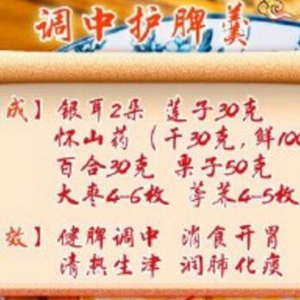 调中护脾羹
成】银耳2朵 莲子30克
怀山药（干30克,鲜100
百合30克 栗子50克
大枣4-6枚 荸荠4-5枚
效】健脾调中 消食开胃
清热生津 润肺化痰